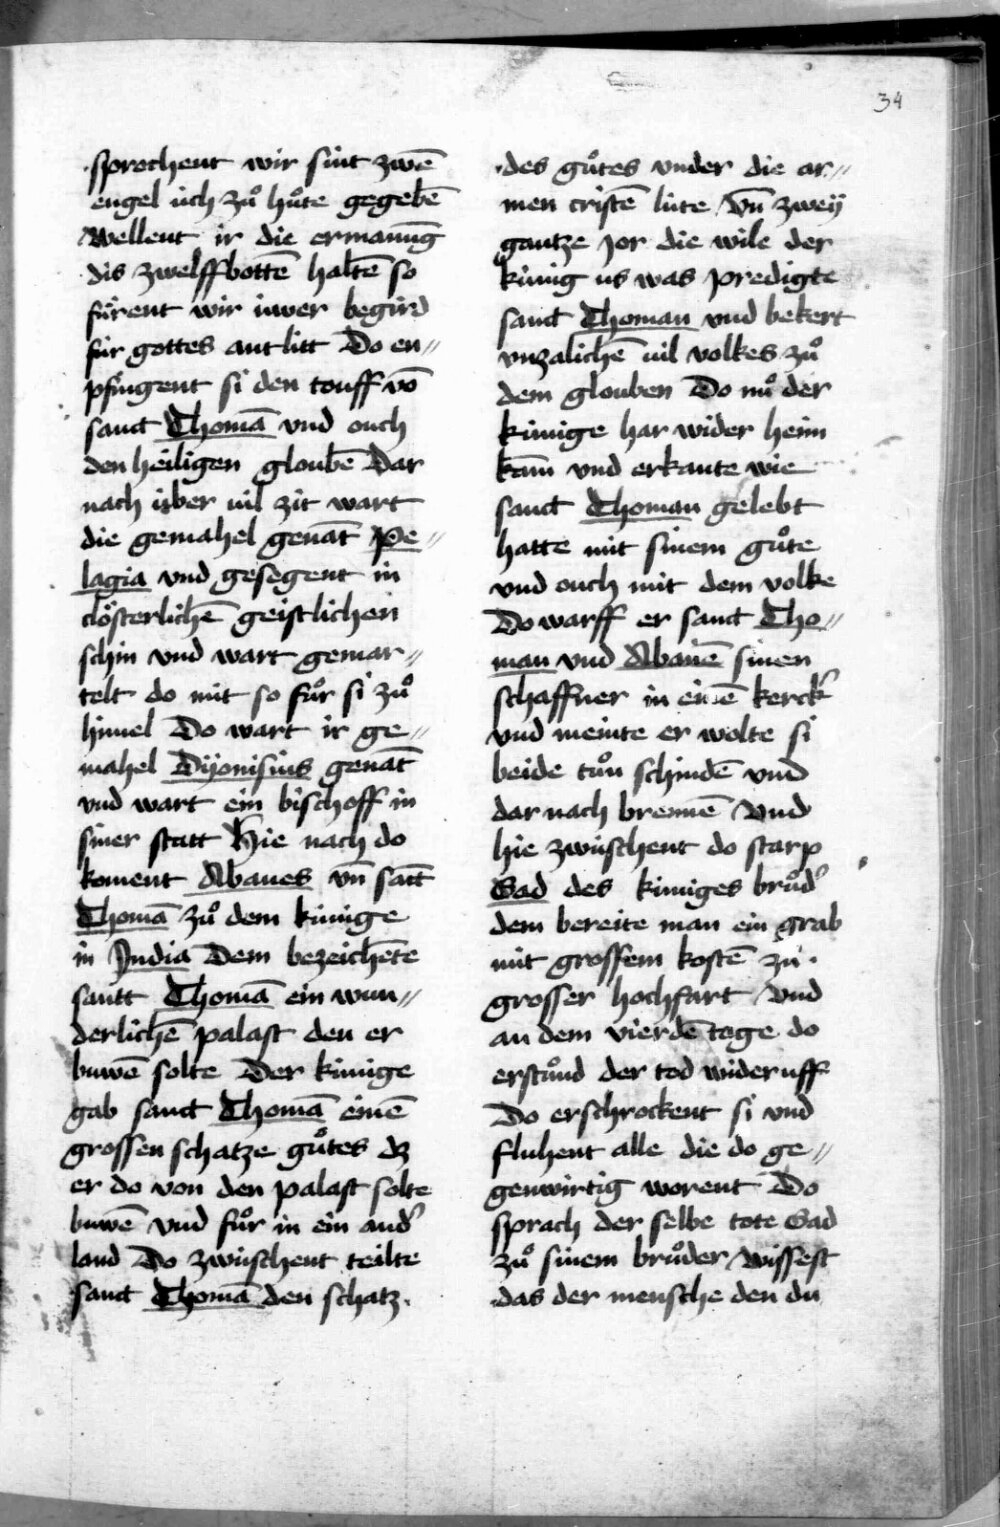 34
sprochent wir sint zwē
engel üch zů hůte gegebē
Wellent ir die ermanūg
dis zwelffbottē haltē so
fürent wir üwer begird
für gottes antlitt Do en〃
pfingent si den touff vō
sanct Thomā vnd ouch
den heiligen gloubē Dar
nach über vil zit wart
die gemahel genāt Pe〃
lagia vnd gesegent in
clösterlichē geistlichen
schin vnd wart gemar〃
telt do mit so fůr si zů
himel Do wart ir ge〃
mahel Dyonisius genāt
vnd wart ein bischoff in
siner statt Hie nach do
koment Abanes vn̄ sāct
Thomā zů dem künige
in India Dem bezeichēte
santt Thomā ein wun〃
derlichē palast den er
buwē solte Der künige
gab sanct Thomā einē
grossen schatze gůtes dz
er do von den palast solte
buwē vnd fůr in ein and͛
land Do zwüschent teilte
sanct Thomā den schatz.
des gůtes vnder die ar〃
men cristē lüte Vn̄ zwey
gantze jor die wile der
künig us was predigte
sanct Thoman vnd bekert
vnzalichē vil volkes zů
dem glouben Do nů der
künige har wider heim
kam vnd erkante wie
sanct Thoman gelebt
hatte mit sinem gůte
vnd ouch mit dem volke
Do warff er sanct Tho〃
man vnd Abanē sinen
schaffner in einē kerck͛
vnd meinte er wolte si
beide tůn schindē vnd
dar nach brennē Vnd
hie zwüschent do starp
Gad des küniges brůd͛
dem bereite man ein grab
mit grossem kostē zů
grosser hochfart Vnd
an dem vierdē tage do
erstůnd der tod wider uff
Do erschrockent si vnd
fluhent alle die do ge〃
genwirtig worent Do
sprach der selbe tote Gad
zů sinem brůder Wissest
das der mensche den du